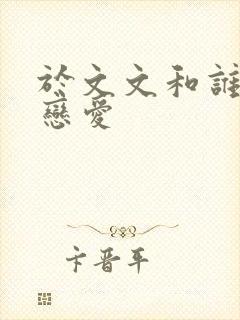 於文文和誰
戀愛
卞晋平